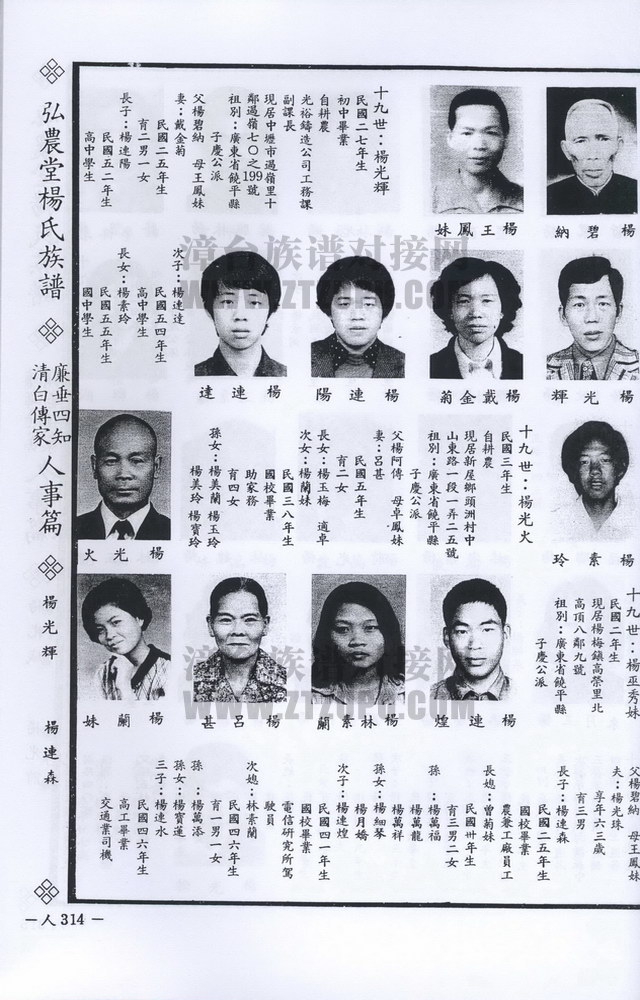 楊碧納
楊王鳳妹
十九世：楊光輝
民國二七年生
初中畢業
自耕農
光裕鑄造公司工務課
副課長
現居中壢市過嶺里十
鄰過嶺七〇之199號
祖別：廣東省饒平縣
子慶公派
父楊碧納 母王鳳妹
妻：戴金菊
民國二五年生
育二男一女
長子：楊連陽
民國五二年生
高中學生
楊光輝
楊戴金菊
楊連陽
楊連達
次子：楊連達
民國五四年生
高中學生
長女：楊素玲
民國五五年生
國中學生
楊素玲
十九世：楊光火
民國三年生
自耕農
現居新屋鄉頭洲村中
山東路一段一弄二五號
祖別：廣東省饒平縣
子慶公派
父楊阿傳 母卓鳳妹
妻：呂甚
民國五年生
育二女
長女：楊玉梅 適卓
次女：楊蘭妹
民國三八年生
國校畢業
助家務
育四女
孫女：楊美蘭 楊玉玲
楊美玲 楊寶玲
楊光火
十九世：楊巫秀妹
民國二年生
現居楊梅鎮高榮里北
高頂八鄰九號
祖別：廣東省饒平縣
子慶公派
楊連煌
楊林素蘭
楊呂甚
楊蘭妹
父楊碧納 母王鳳妹
夫：楊光珠
享年六三歲
育三男
長子：楊連森
民國二五年生
國校畢業
農兼工廠員工
長媳：曾菊妹
民國卅年生
育三男二女
孫：楊萬福
楊萬龍
楊萬祥
孫女：楊細琴
楊月嬌
次子：楊連煌
民國四一年生
國校畢業
電信研究所駕
駛員
次媳：林素蘭
民國四六年生
育一男一女
孫：楊萬添
孫女：楊寶蓮
三子：楊連水
民國四六年生
高工畢業
交通業司機
弘農堂楊氏族譜
廉垂四知
清白傳家
人事篇
楊光輝
楊連森
－人314－
漳台族谱对接网
WWW.ZTZUPU.COM
漳台族谱对接网
WWW.ZTZUPU.COM